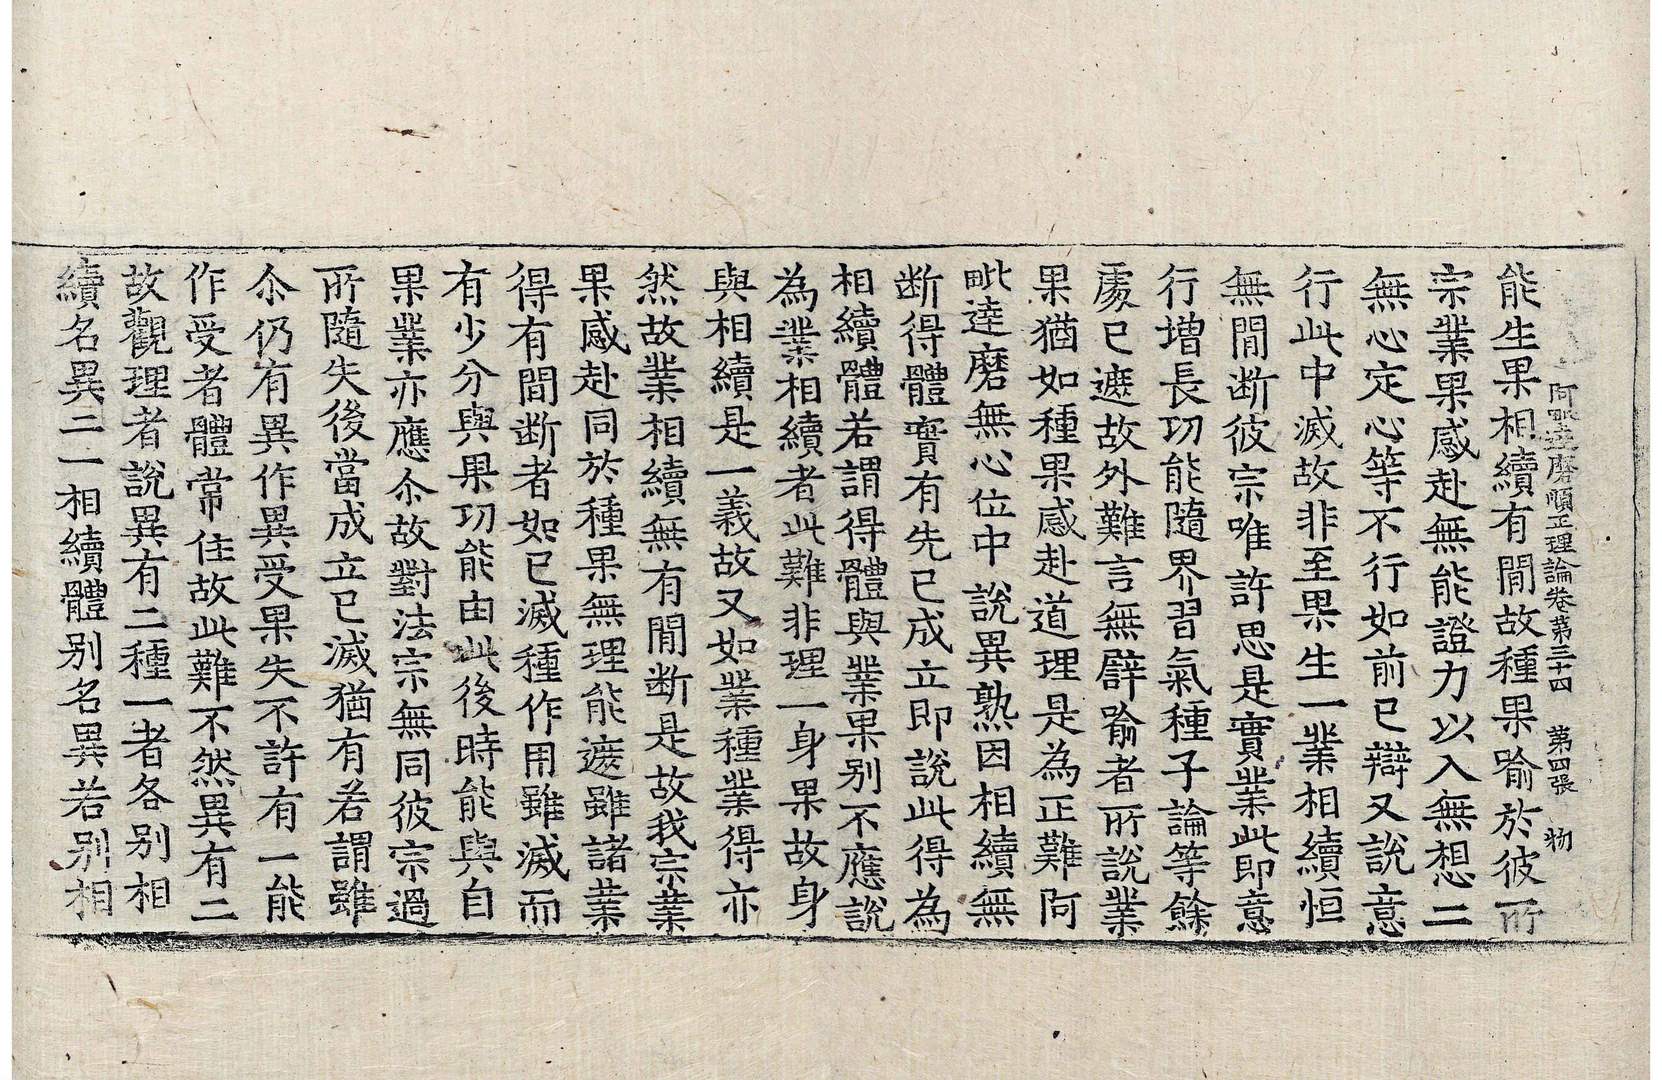 阿毗達磨順正理論卷第三十四　第四張　物
能生果相續有閒故種果喻於彼所
宗業果感赴無能證力以入無想二
無心定心等不行如前已辯又說意
行此中滅故非至果生一業相續恒
無閒斷彼宗唯許思是實業此即意
行增長功能隨界習氣種子論等餘
處已遮故外難言無譬喻者所說業
果猶如種果感赴道理是為正難阿
毗達磨無心位中說異熟因相續無
斷得體實有先已成立即說此得為
相續體若謂得體與業果別不應說
為業相續者此難非理一身果故身
與相續是一義故又如業種業得亦
然故業相續無有閒斷是故我宗業
果感赴同於種果無理能遮雖諸業
得有間斷者如已滅種作用雖滅而
有少分與果功能由此後時能與自
果業亦應尒故對法宗無同彼宗過
所隨失後當成立已滅猶有若謂雖
尒仍有異作異受果失不許有一能
作受者體常住故此難不然異有二
故觀理者說異有二種一者各別相
續名異二一相續體別名異若別相